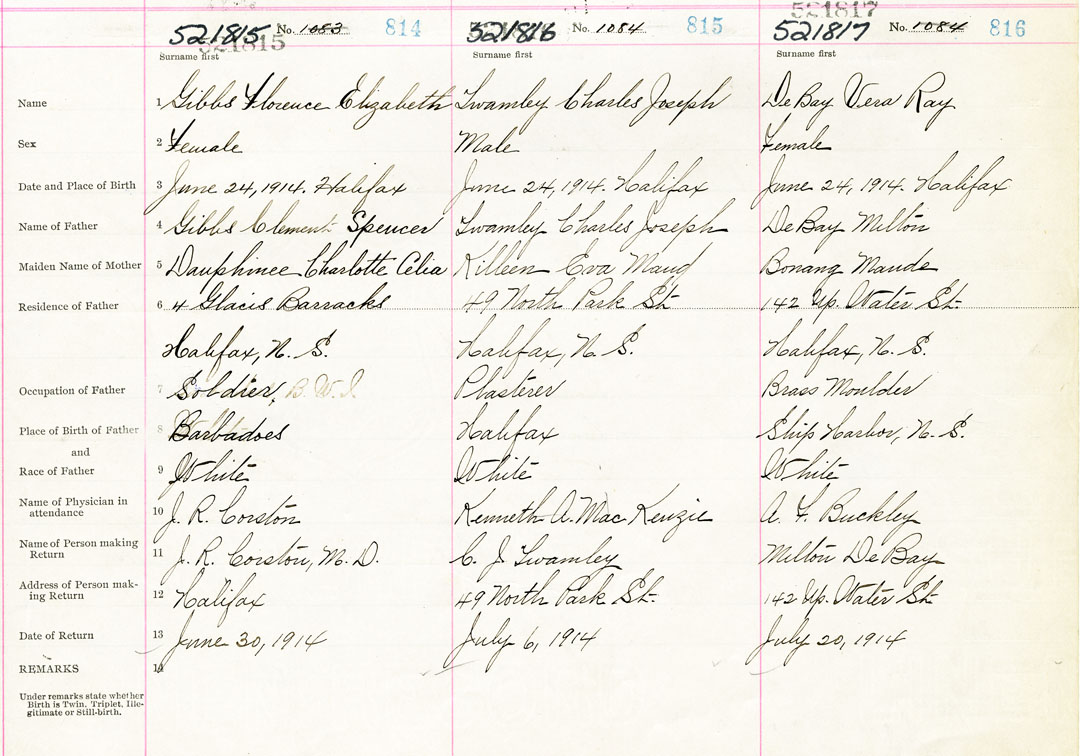 521817
521815 No. 1083 814 521816 No. 1084 815 521817 No. 1084 816
521815
Surname first Surname first Surname first
Name 1 Gibbs Florence Elizabeth Twamley Charles Joseph DeBay Vera Ray
Sex 2 Female Male Female
Date and Place of Birth 3 June 24, 1914. Halifax June 24, 1914. Halifax June 24, 1914. Halifax
Name of Father 4 Gibbs Clement Spencer Twamley Charles Joseph DeBay Milton
Maiden Name of Mother 5 Dauphinee Charlotte Celia Killeen Eva Maud Bonang Maude
Residence of Father 6 4 Glacis Barracks 49 North Park St. 142 Up. Water St.
Halifax, N. S. Halifax, N. S. Halifax, N. S.
Occupation of Father 7 Soldier, B. W. I. Plasterer Brass Moulder
Place of Birth of Father 8 Barbadoes Halifax Ship Harbor, N. S.
and
Race of Father 9 White White White
Name of Physician in
attendance 10 J. R. Corston Kenneth A. MacKenzie A. F. Buckley
Name of Person making
Return 11 J. R. Corston, M. D. C. J. Twamley Milton DeBay
Address of Person mak-
ing Return 12 Halifax 49 North Park St. 142 Up. Water St.
Date of Return 13 June 30, 1914 July 6, 1914 July 20, 1914
REMARKS 14
Under remarks state whether
Birth is Twin, Triplet, Ille-
gitimate or Still-birth.